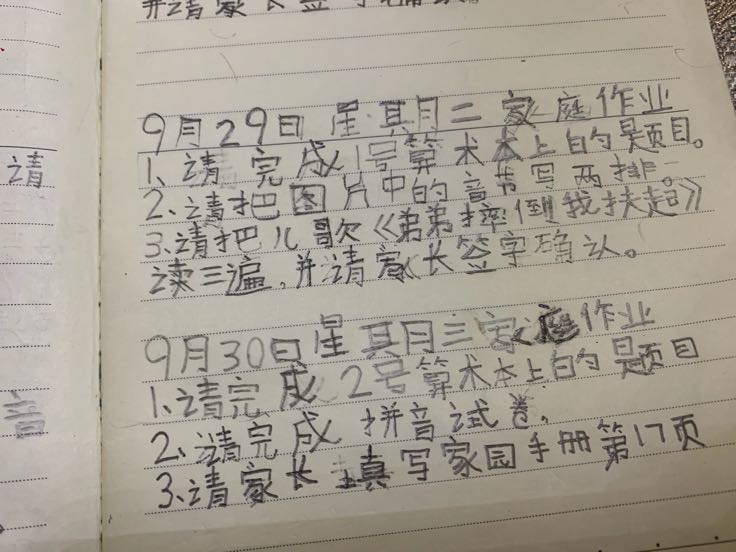 并请家长签字确认。
9月29日 星期二 家庭作业
1、请完成1号算术本上的题目。
2、请把图片中的音节写两排。
3、请把儿歌《弟弟摔倒我扶起》
读三遍,并请家长签字确认。
9月30日星期三家庭作业
1、请完成2号算术本上的题目
2、请完成拼音试卷,
3、请家长填写家园手册第17页
请
音